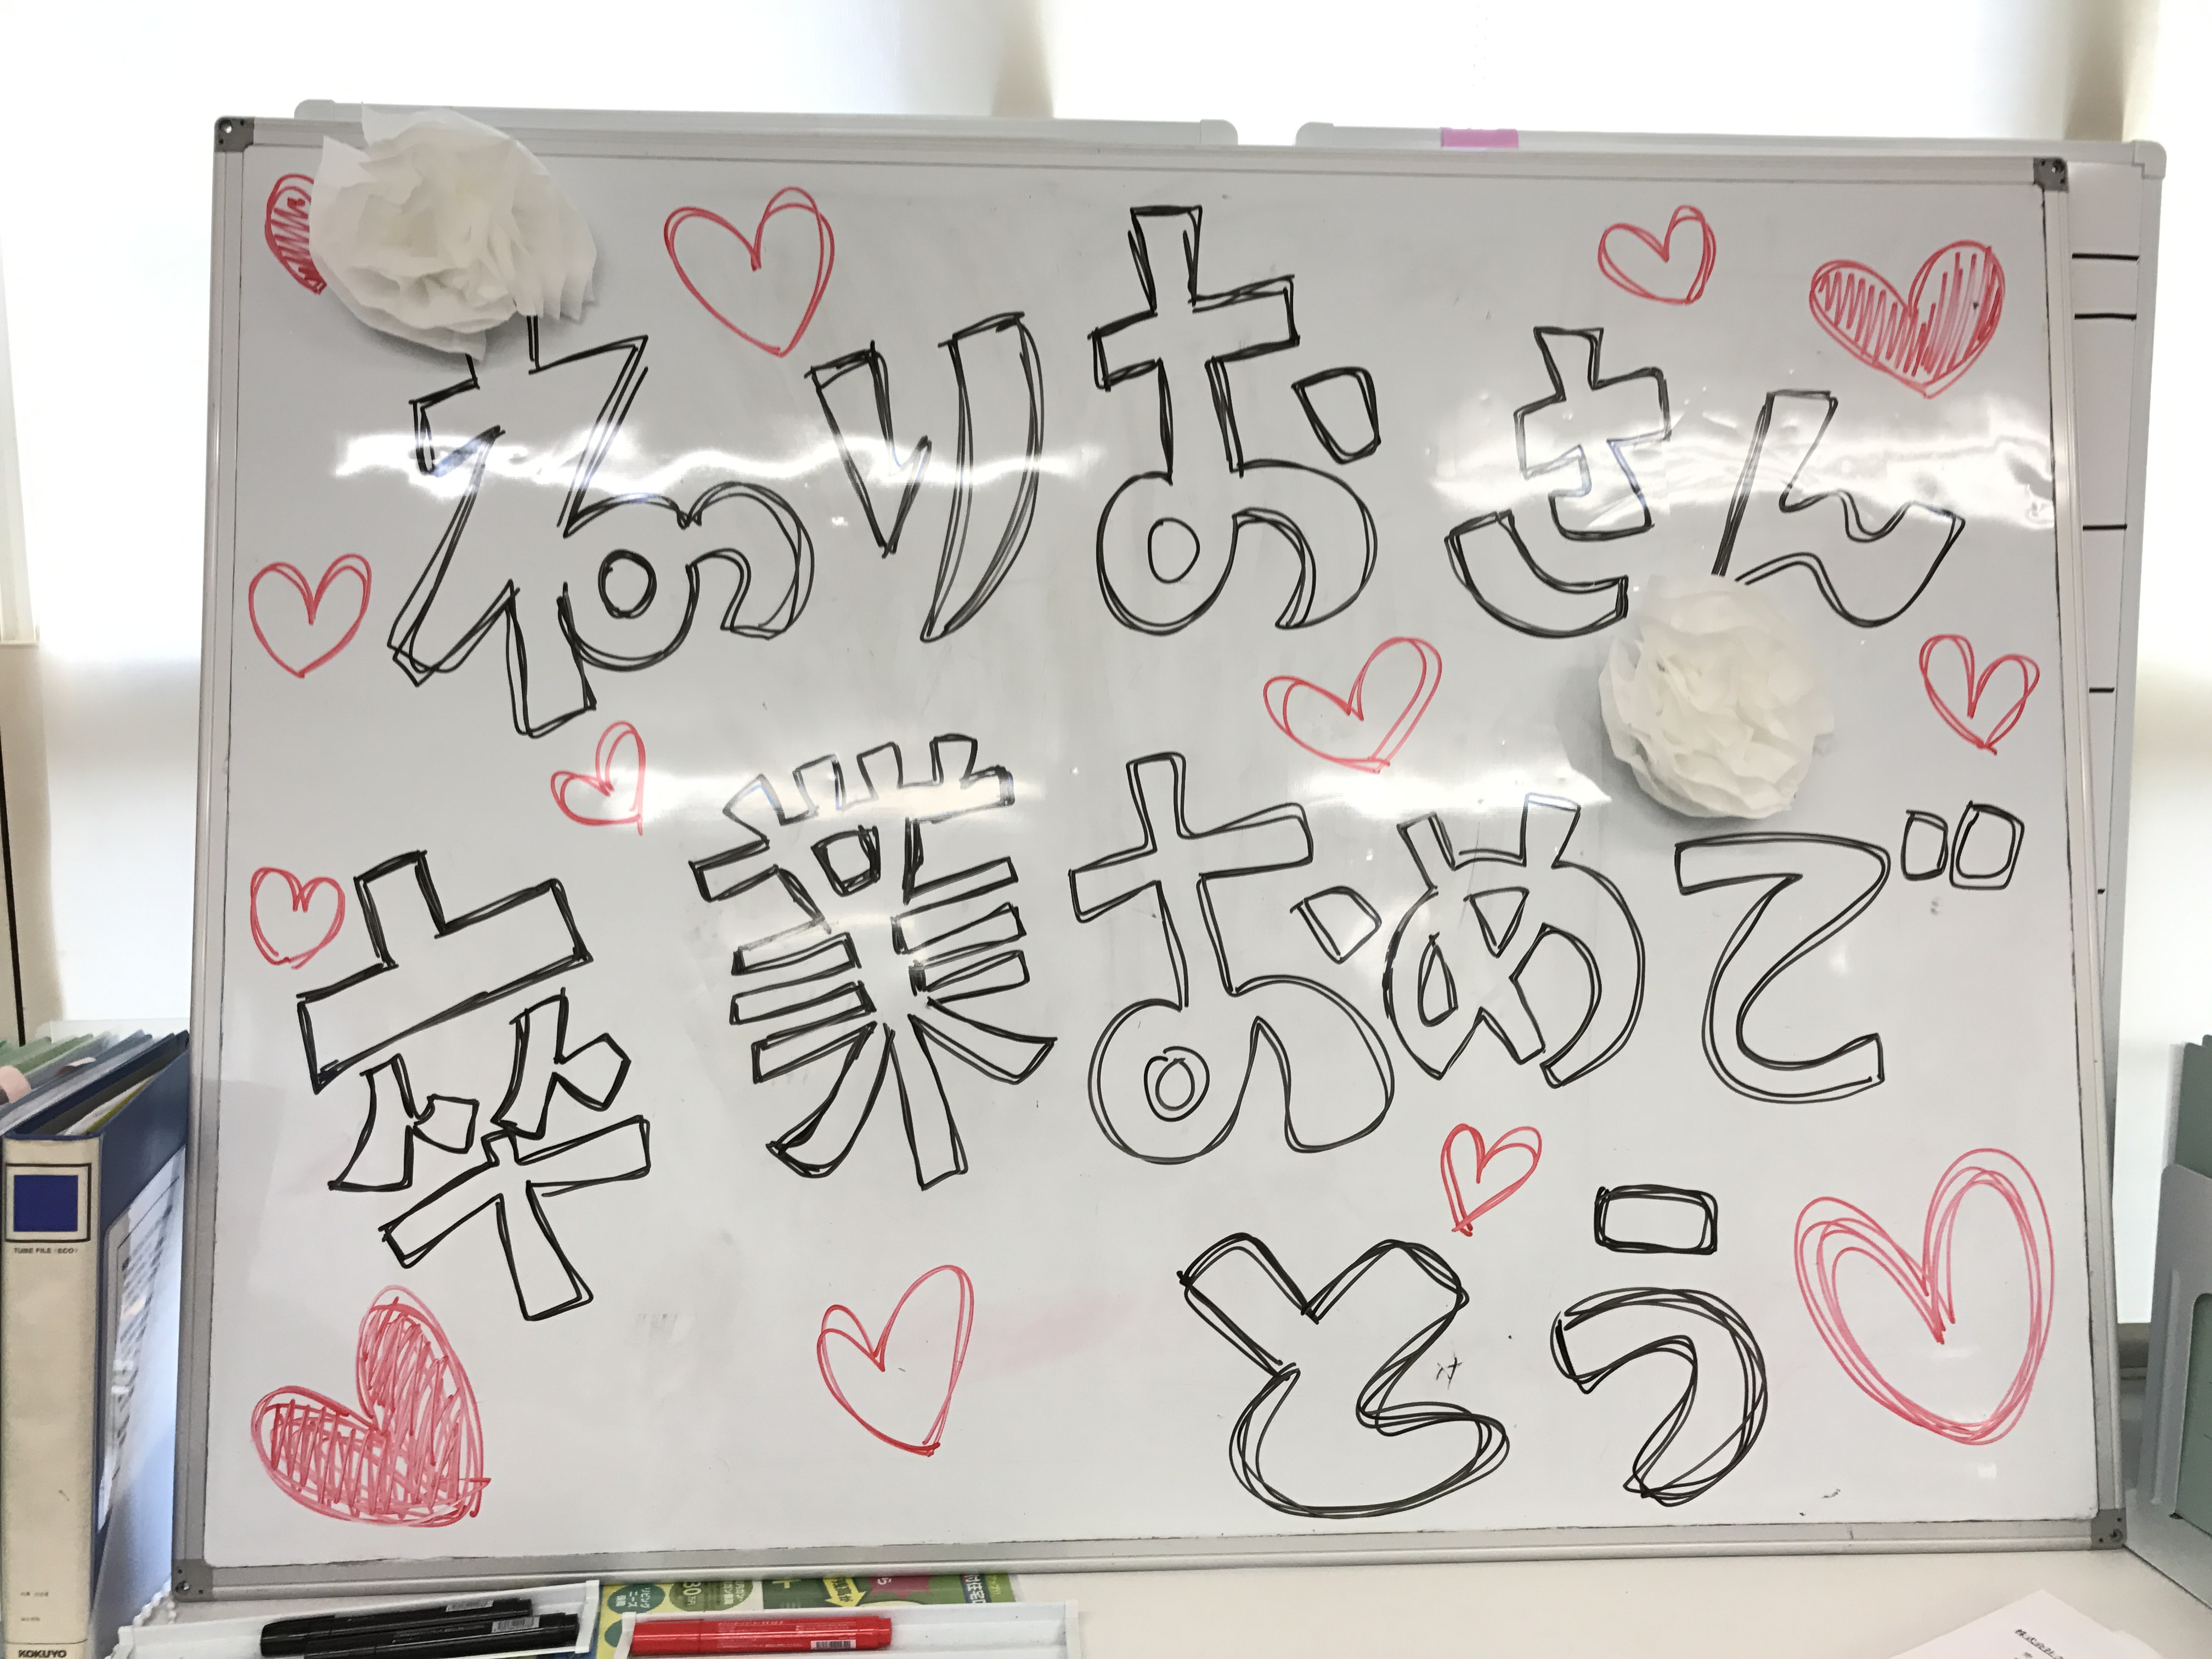 ねりおさん
卒業おめで
とう
TUBE FILE〈ECO〉
KOKUYO